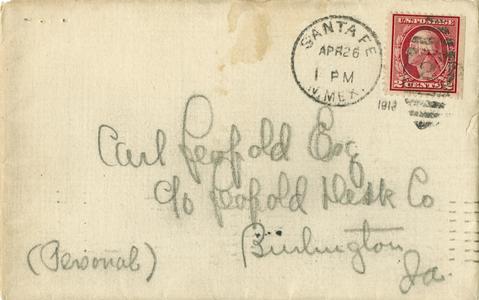 SANTA FE
APR 26
1 PM
N. MEX.
U.S. POSTAGE
2 CENTS 2
1912
Carl Leopold Esq
c/o Leopold Desk Co
Burlington
Ia.
(Personal)